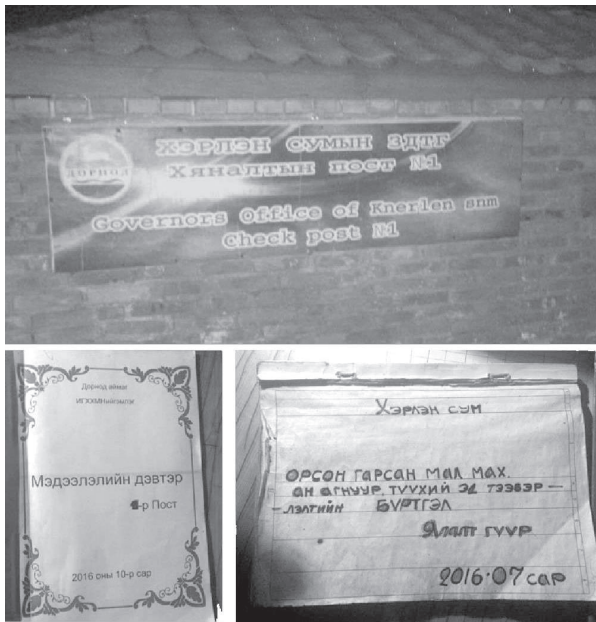 ДОРНОД
ХЭРЛЭН СУМЫН ЗДТГ
Хяналтын пост №1
Governors Office of Knerlen snm
Check post №1
Дорнод аймаг
Мэдээлэлийн дэвтэр
1-р Пост
2016 оны 10-р сар
Хэрлэн сум
ОРСОН ГАРСАН МАЛ МАХ
АН АГНУУР, ТҮҮХИЙ ЭД ТЭЭВЭР –
– ЛЭЛТИЙН БҮРТГЭЛ
Ялалт гүүр
2016.07 сар